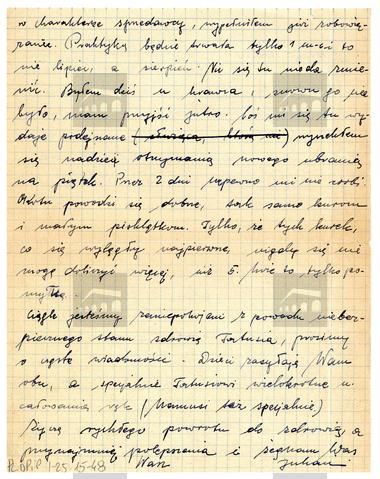 w charakterze sprzedawcy, wypełniłem już zobowią-
zanie. Praktyka będzie trwała tylko 1 m-c i to
nie lipiec, a sierpień. Nie się tu nie da zmie-
nić. Byłem dziś u krawca, znowu go nie
było, mam przyjść jutro. Coś mi się tu wy-
daje podejrzane wyrzekłem
się nadziei otrzymania nowego ubrania
na piątek. Przez 2 dni napewno mi nie zrobi.
powodzi się dobrze, tak samo kurom
i małym pisklętkom. Tylko, że tych kurek,
co się wylęgły najpierwsze, nigdy się nie
mogę doliczyć więcej, niż 5. to tylko po-
myłka.
Ciągle jesteśmy zaniepokojeni z powodu niebez-
piecznego stanu zdrowia Tatusia, prosimy
o częste wiadomości. Dzieci zasyłają Wam
obu, a specjalnie Tatusiowi wielokrotne u-
całowania rąk (Mamusi też specjalnie)
Życzę rychłego powrotu do zdrowia, a
przynajmniej polepszenia i żegnam Was
Wasz Julian
PL OPiP 1-25-15-48